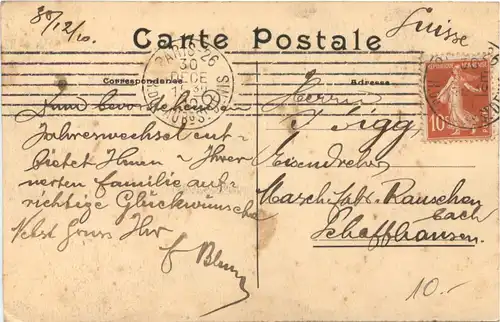 30/12/10.
Suisse
Carte Postale
Correspondance
Adresse
PARIS 26
30
DECE
10
Zum bevorstehenden
Jahreswechsel ent-
bietet Ihnen & Ihrer
werten Familie auf-
richtige Glückwünsche
Nebst Gruss Ihr
Herrn
J. Sigg,
Eisendreher
Masch. Fabr. Rauschen
bach
Schaffhausen.
10
10.-